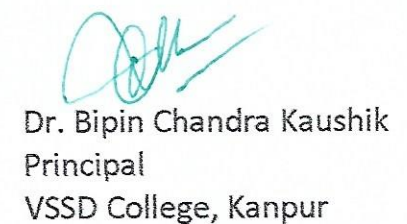 Dr. Bipin Chandra Kaushik
Principal
VSSD College, Kanpur